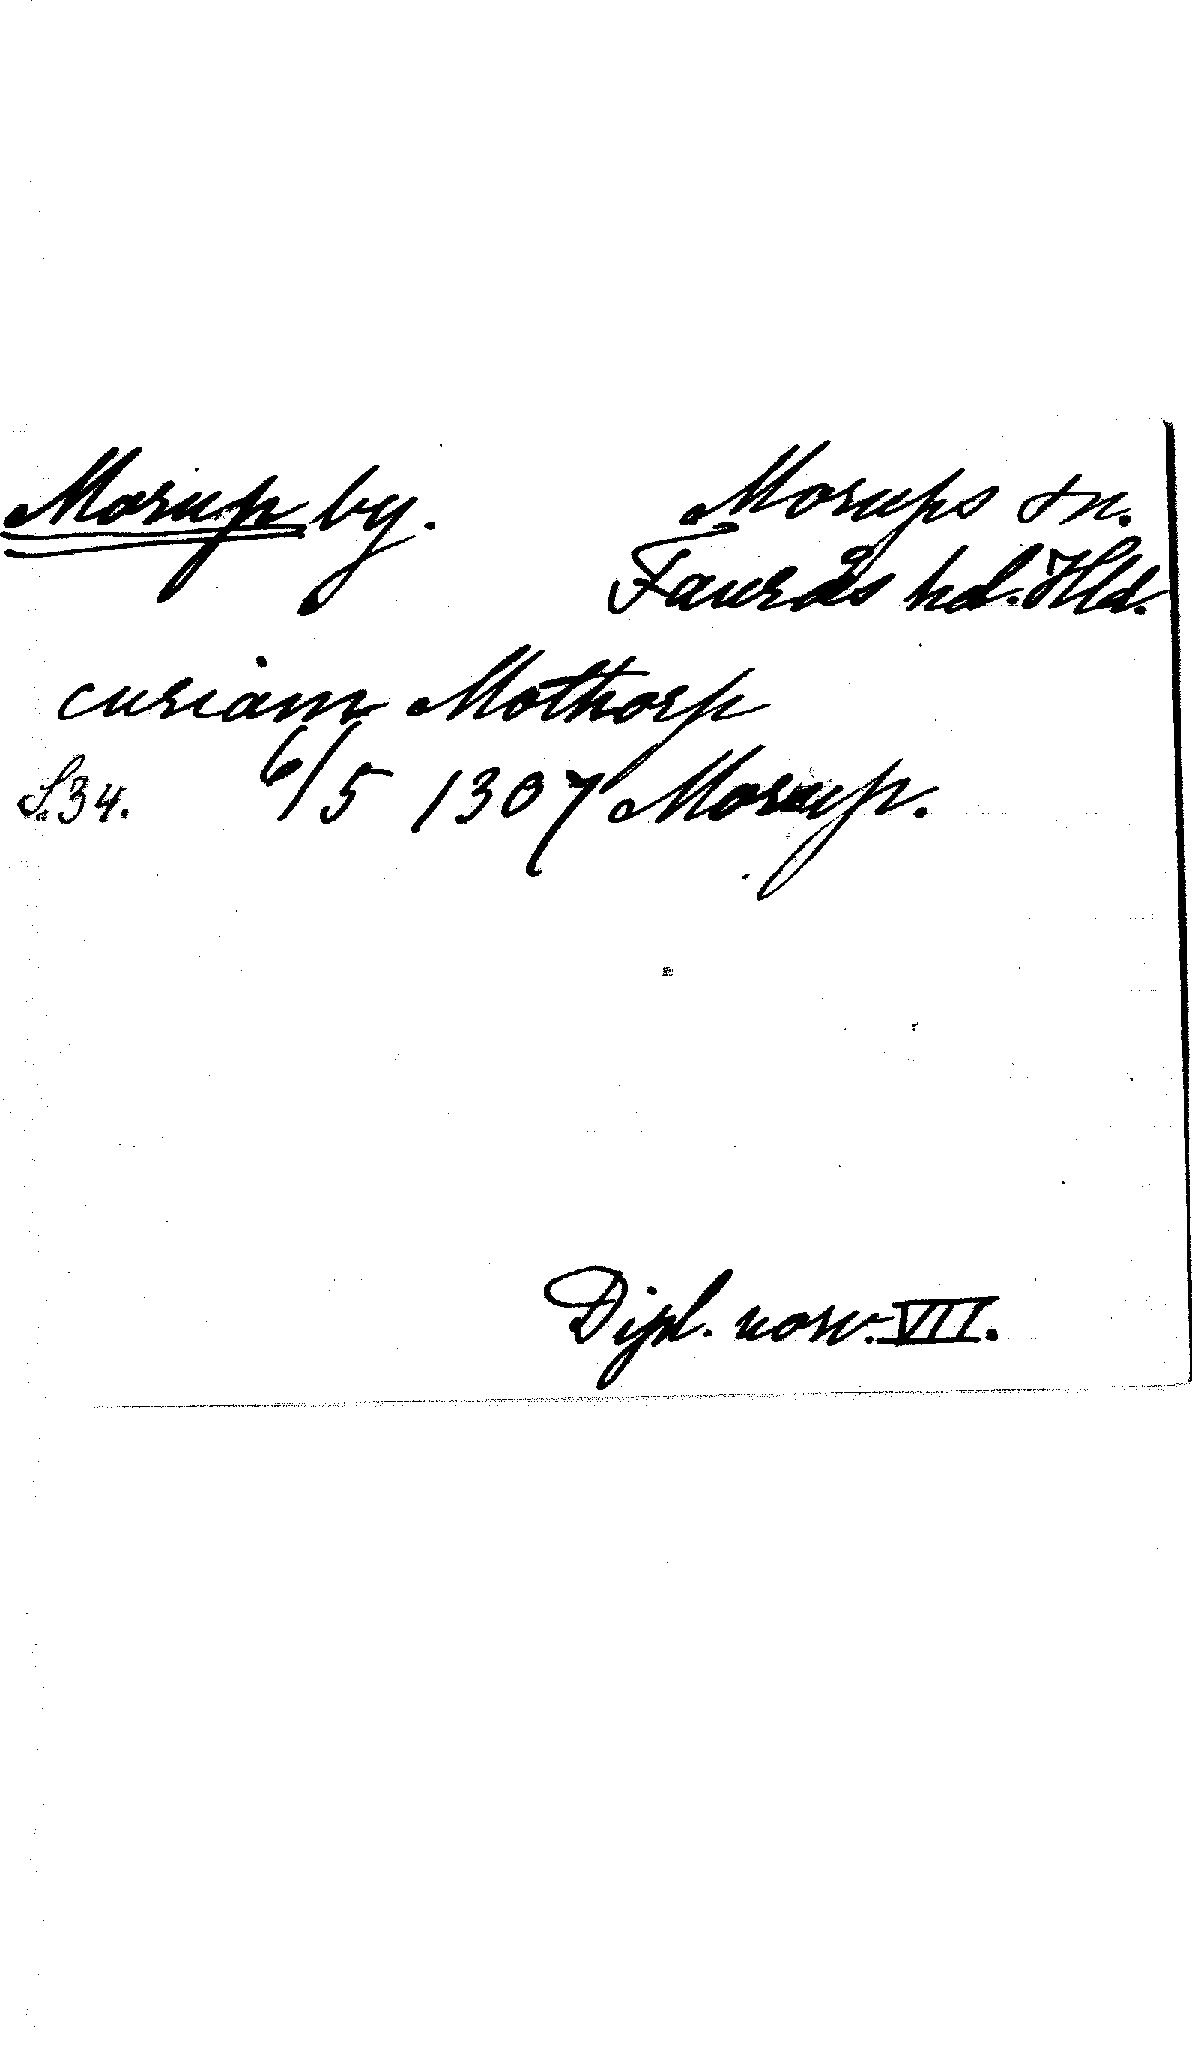 Morup by. Morups sn.
Faurås hd. Hld.
curiam Mothorp
S.34. 6/5 1307 Morup.
Dipl. norv. VII.